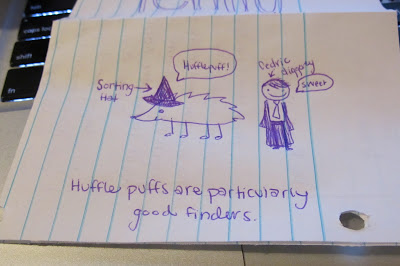 Hufflepuff!
Cedric
Diggory
sweet
Sorting
Hat
Huffle puffs are particularly
good finders.
fn